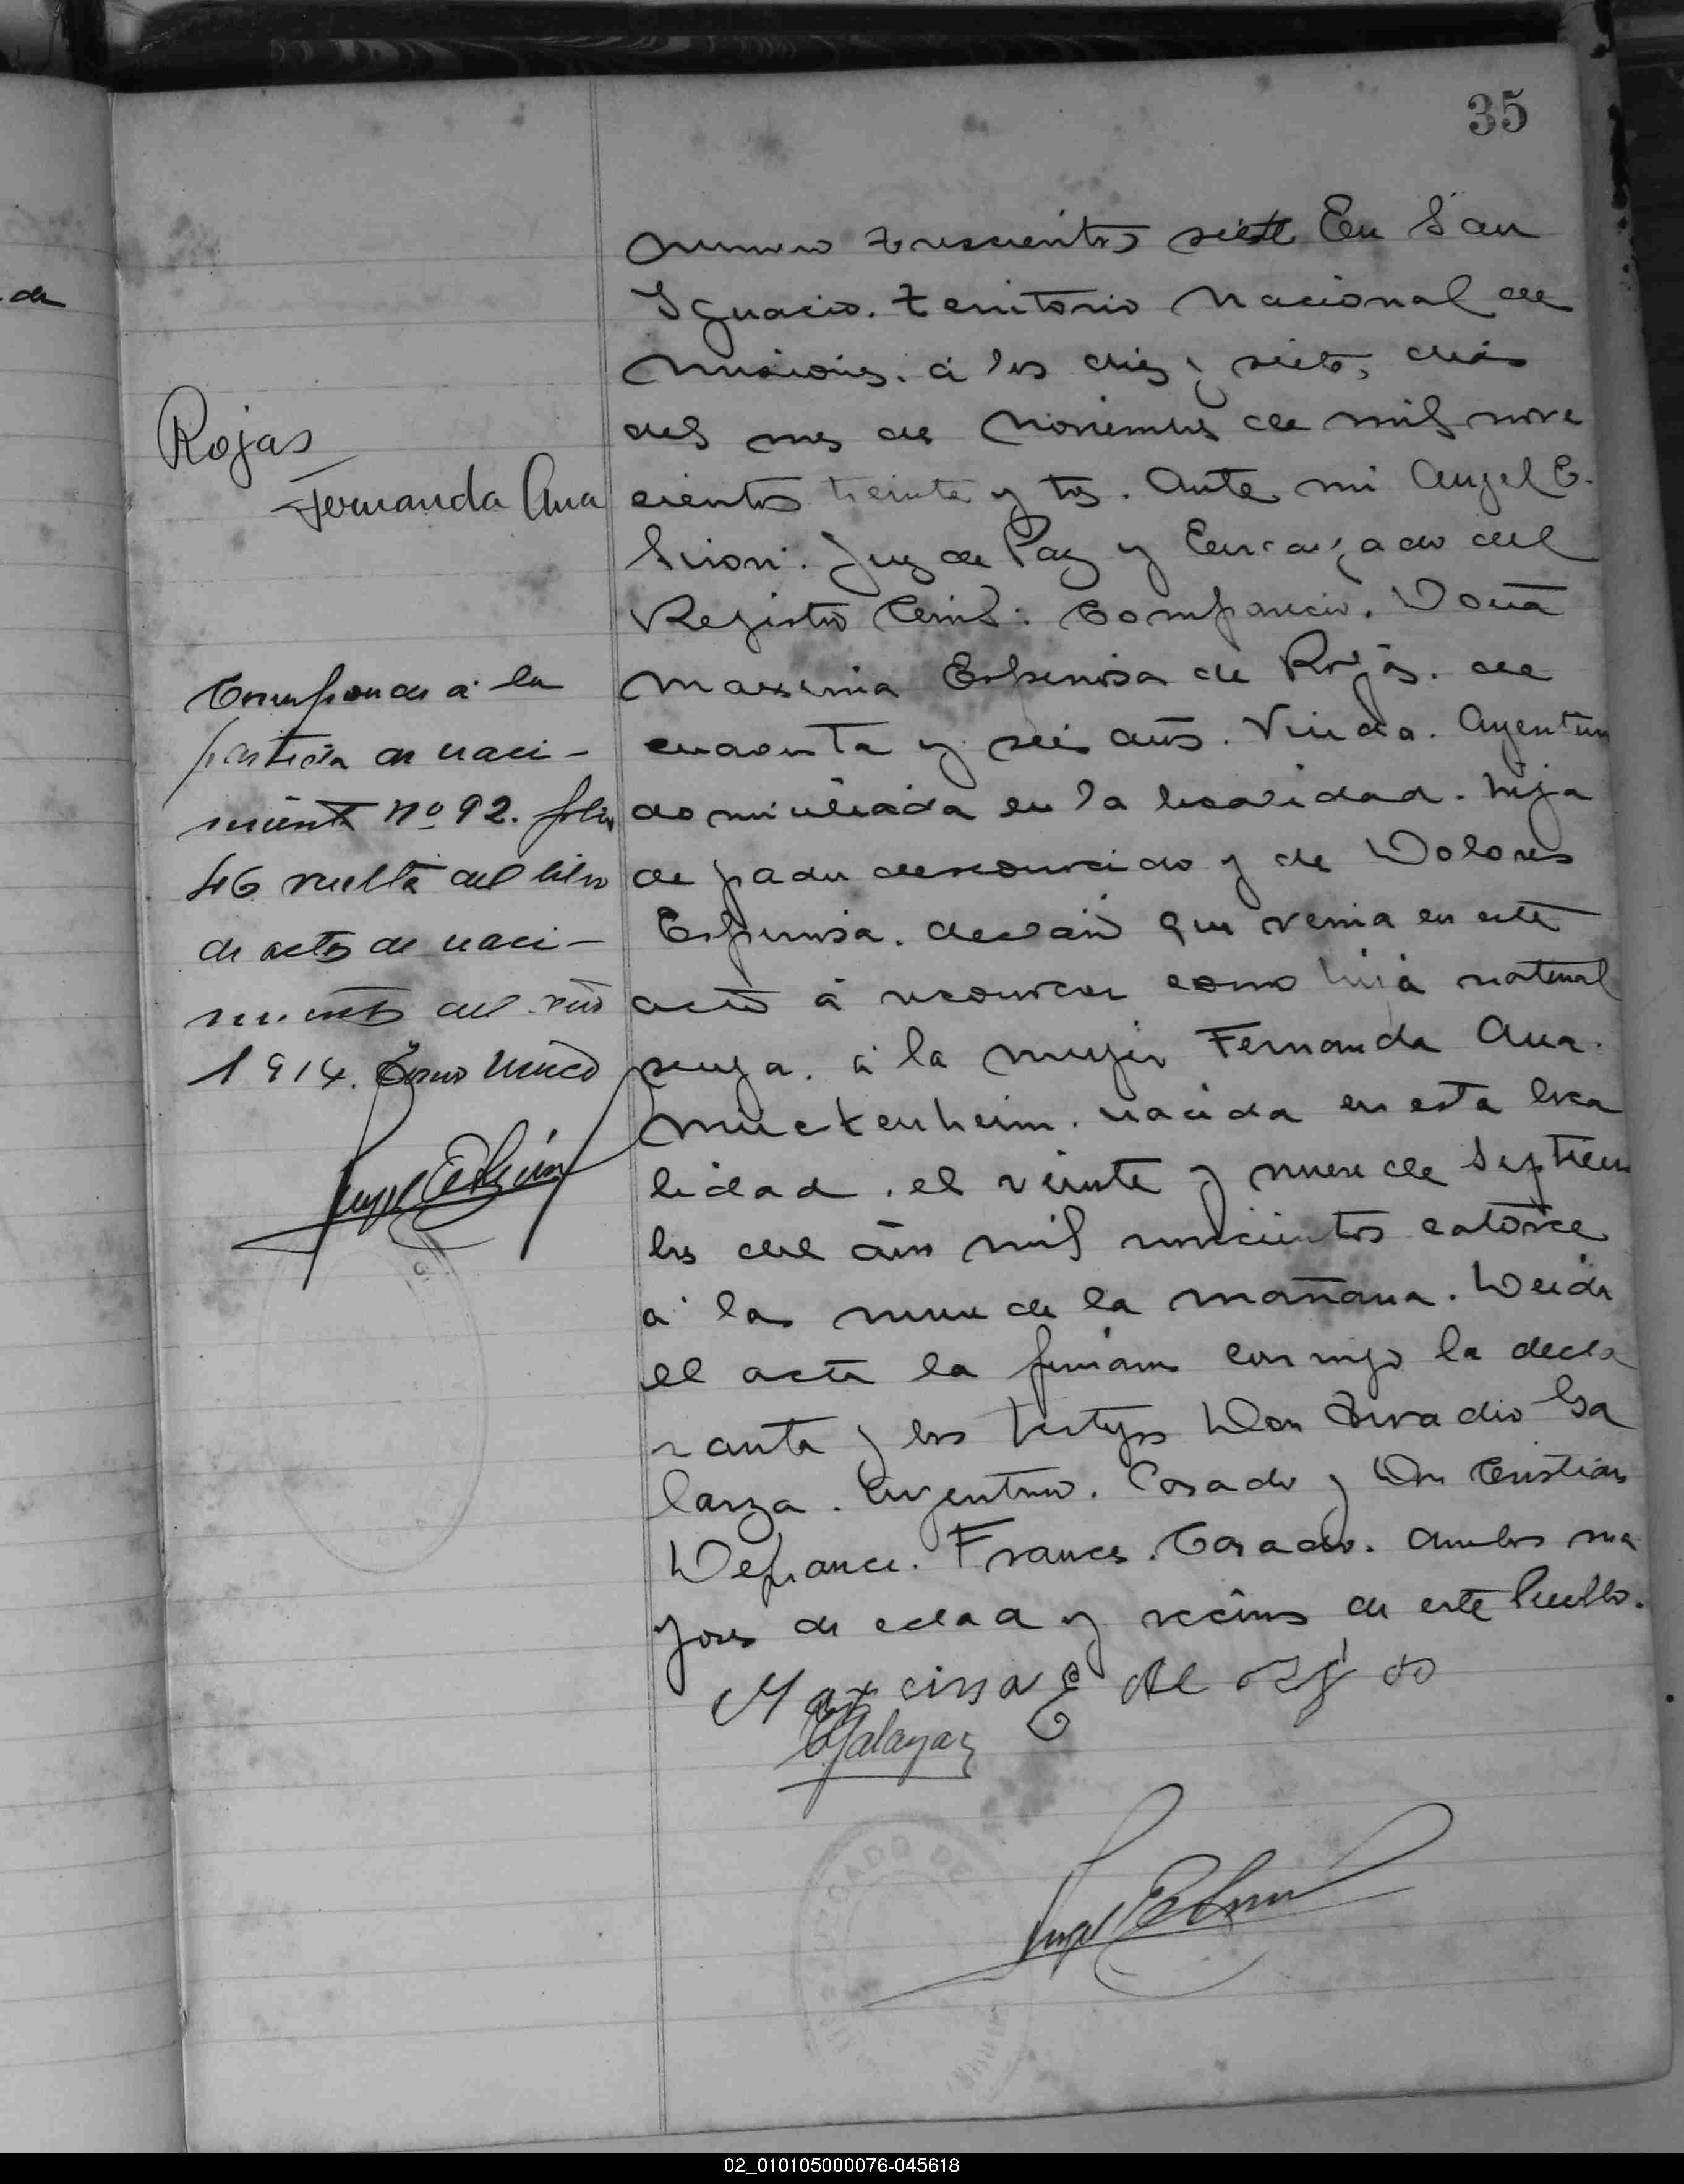 35
Rojas
Fernanda Ana
Corresponde á la
partida de naci-
miento nº 92. folio
46 vuelta del libro
de actos de naci-
mientos del año
1914. Tomo Unico
numero trescientos siete En San
Ignacio. Territorio Nacional de
Misiones. á los diez y siete, dias
del mes de Noviembre de mil nove
cientos treinta y tres. Ante mi Angel E.
Juez de Paz y Encargado del
Registro Civil: Comparecio. Doña
Maxsimia Espinosa de Rojas. de
cuarenta y seis años. Viuda. Argentina
domiciliada en la localidad. hija
de padre desconocido y de Dolores
Espinosa. declaró que venia en este
acto á reconocer como hija natural
suya. á la mujer Fernanda Ana.
Muckenheim. nacida en esta loca
lidad. el veinte y nueve de Septiem
bre del año mil novecientos catorce
a las nueve de la mañana. Leida
el acta la firman conmigo la decla
rante y los testigos Don Ga
larza. Argentino. Casado y Don Cristian
Defrance. Frances. Casado. Ambos ma
yores de edad y vecinos de este Pueblo.
JUZGADO DE
02_010105000076-045618